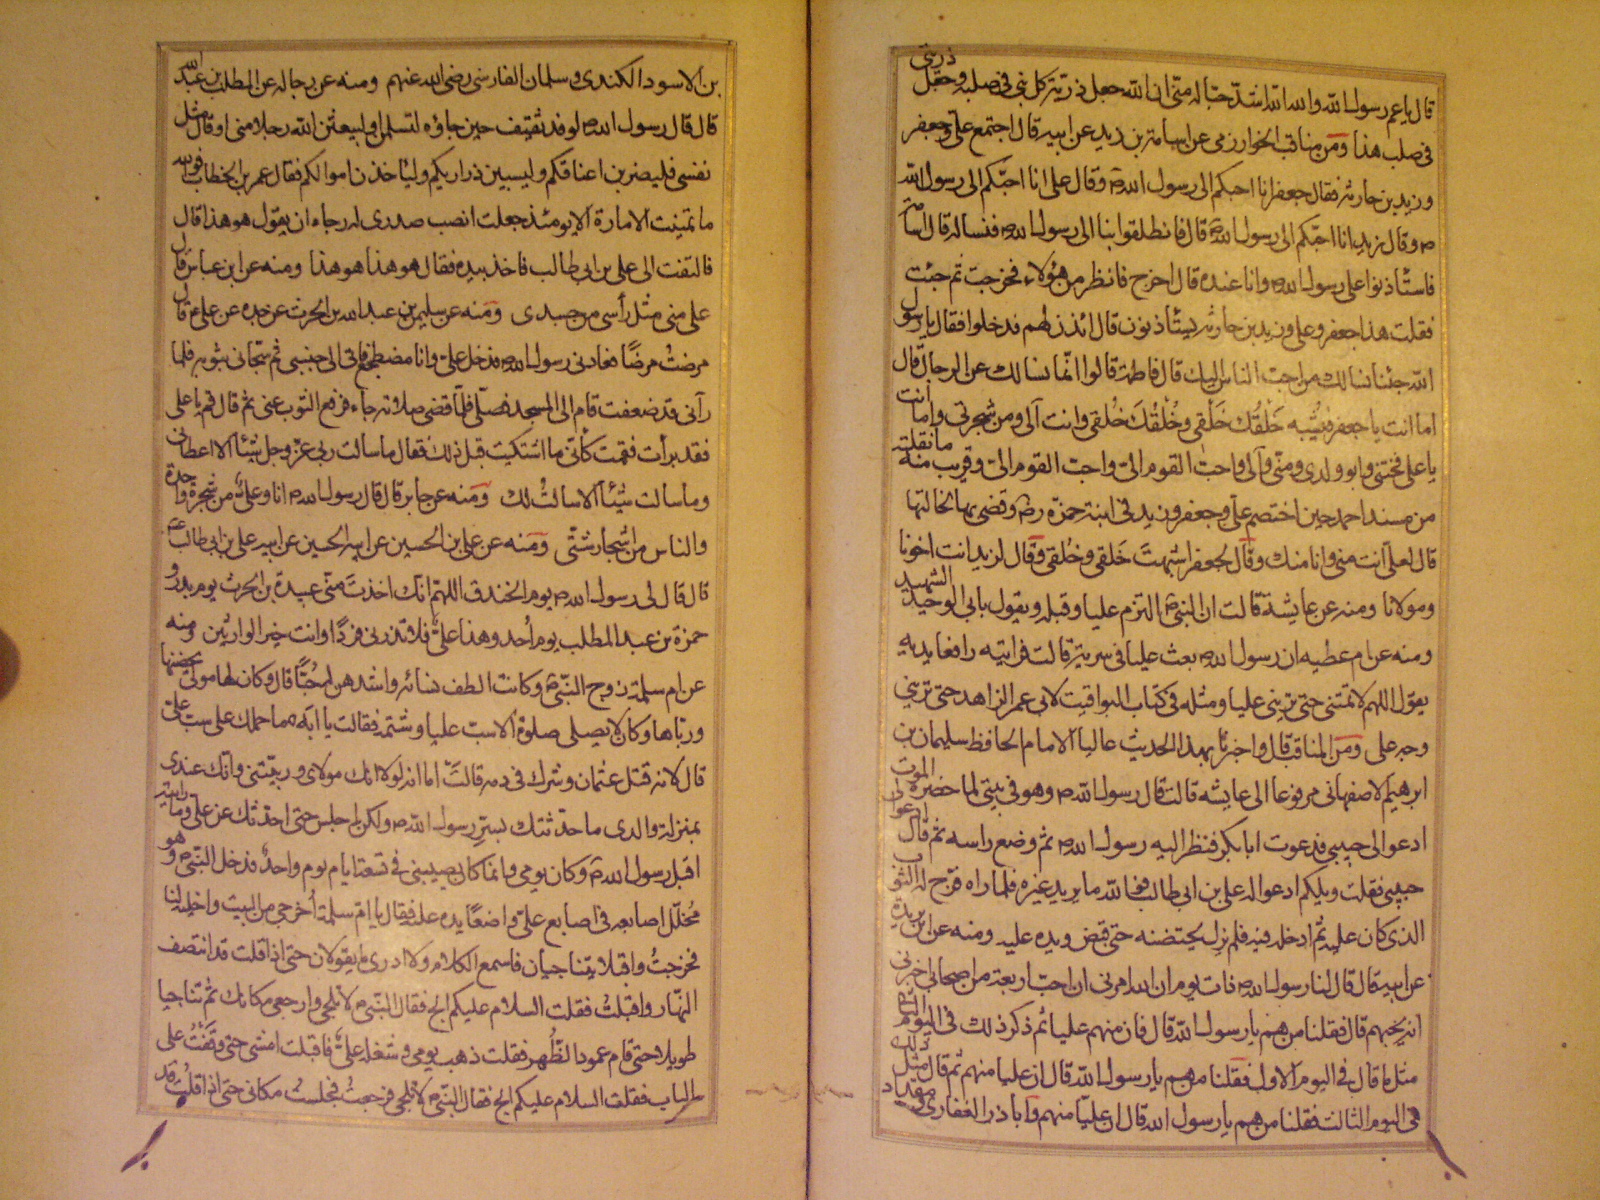 قال يا عم رسول الله والله الله اشد حبا له منى ان الله جعل ذرية كل نبى فى صلبه وجعل ذريتى
فى صلب هذا ومن مناقب الخوارزمى عن اسامة بن زيد عن ابيه قال اجتمع على وجعفر
وزيد بن حارثه فقال جعفر انا احبكم الى رسول الله ص وقال على انا احبكم الى رسول الله
ص وقال زيد انا احبكم الى رسول الله ص قال فانطلقوا بنا الى رسول الله ص فنساله قال اسامة
فاستأذنوا على رسول الله ص وانا عنده قال اخرج فانظر من هؤلاء فخرجت ثم جئت
فقلت هذا جعفر وعلى وزيد بن حارثه يستأذنون قال ائذن لهم فدخلوا فقال يا رسول
الله جئنا نسالك من احب الناس اليك قال فاطمة قالوا انما نسالك عن الرجال قال
اما انت يا جعفر فيشبه خَلقُك خَلقى وخُلقُك خُلقى وانت آلى ومن شجرتى واما انت
يا على فختنى وابو ولدى ومنى وآلى واحب القوم الىّ واحب القوم الىّ وقريب منه ما نقلته
من مسند احمد حين اختصم على وجعفر وزيد فى ابنة حمزة رض وقضى بها لخالتها
قال لعلى انت منى وانا منك وقال لجعفر اشبهت خَلقى وخُلقى وقال لزيد انت اخونا
ومولانا ومنه عن عايشة قالت ان النبى ص التزم عليا وقبله ويقول بابى الوحيد الشهيد
ومنه عن ام عطيه ان رسول الله ص بعث عليا فى سرية قالت فرايته رافعا يديه
يقول اللهم لا تمتنى حتى ترينى عليا ومثله فى كتاب اليواقيت لابى عمر الزاهد حتى ترينى
وجه على ومن المناقب قال واخبرنا بهذا الحديث عاليا الامام الحافظ سليمان بن
ابرهيم الاصفهانى مرفوعا الى عايشه قالت قال رسول الله ص وهو فى بيتى لما حضره الموت
ادعوا لى حبيبى فدعوت ابا بكر فنظر اليه رسول الله ص ثم وضع راسه ثم قال ادعوا لى
حبيبى فقلت ويلكم ادعوا له على بن ابى طالب فوالله ما يريد غيره فلما راه فرج له الثوب
الذى كان عليه ثم ادخله فيه فلم يزل يحتضنه حتى قبض ويده عليه ومنه عن ابن بريدة
عن ابيه قال قال لنا رسول الله ص ذات يوم ان الله امرنى ان احب اربعة من اصحابى اخبرنى
انه يحبهم قال فقلنا من هم يا رسول الله قال فان منهم عليا ثم ذكر ذلك فى اليوم الثانى
مثل ما قال فى اليوم الاول فقلنا من هم يا رسول الله قال ان عليا منهم ثم قال مثل ذلك
فى اليوم الثالث فقلنا من هم يا رسول الله قال ان عليّا منهم وابا ذر الغفارى ومقداد
بن الاسود الكندى وسلمان الفارسى رضى الله عنهم ومنه عن رجاله عن المطلب بن عبد الله
قال قال رسول الله ص لوفد ثقيف حين جاؤه لتسلمن او ليبعثن الله رجلا منى او قال مثل
نفسى فليضربن اعناقكم وليسبين ذراريكم وليأخذن اموالكم فقال عمر بن الخطاب فوالله
ما تمنيت الامارة الا يومئذ جعلت انصب صدرى له رجاء ان يقول هو هذا قال
فالتفت الى على بن ابى طالب فاخذ بيده فقال هو هذا هو هذا ومنه عن ابن عباس قال
على منى مثل رأسى من جسدى ومنه عن سليمن بن عبد الله بن الحرث عن جده عن على ع قال
مرضتُ مرضًا فعادنى رسول الله ص فدخل علىّ وانا مضطجع فاتى الى جنبى ثم سجانى بثوبه فلما
رآنى قد ضعفت قام الى المسجد فصلّى فلمّا قضى صلاته جاء فرفع الثوب عنى ثم قال قم يا على
فقد برأت فقمت كأنّى ما اشتكيت قبل ذلك فقال ما سالت ربى عز وجل شيئا الا اعطانى
وما سالت شيئا الا سالتُ لك ومنه عن جابر قال قال رسول الله ص انا وعلى من شجرة واحدة
والناس من اشجار شتّى ومنه عن على بن الحسين عن ابيه الحسين عن ابيه على بن ابى طالب ع
قال قال لى رسول الله ص يوم الخندق اللهم انك اخذت منّى عبيدة بن الحرث يوم بدر و
حمزة بن عبد المطلب يوم اُحد وهذا علىّ فلا تذرنى فردًا وانت خير الوارثين ومنه
عن ام سلمة زوج النبى ص وكانت الطف نسائه واشدهن له حُبًّا قال وكان لها مولى يحضنها
ورباها وكان لا يصلى صلوة الا سب عليا وشتمه فقالت يا ابه ما حملك على سب على
قال لانه قتل عثمان وشرك فى دمه قالت اما انه لولا انك مولاى وربيتنى وانك عندى
بمنزلة والدى ما حدثتك بسرّ رسول الله ص ولكن اجلس حتى احدثك عن على وما رايته
اقبل رسول الله ص وكان يومى وانما كان يصيبنى فى تسعة ايام يوم واحد فدخل النبى ص وهو
مُخلّل اصابعه فى اصابع علىّ واضعًا يده عليه فقال يا ام سلمة اُخرجى من البيت واخليه لنا
فخرجتُ واقبلا يتناجيان فاسمع الكلام ولا ادرى ما يقولان حتى اذا قلت قد انتصف
النّهار واقبلتُ فقلت السلام عليكم الج فقال النبى ص لا تلجى وارجعى مكانك ثم تناجيا
طويلا حتى قام عمود الظُهر فقلت ذهب يومى وشغله علىّ فاقبلت امشى حتى وقفتُ على
الباب فقلت السلام عليكم الج فقال النبى ص لا تلجى فرجعتُ فجلستُ مكانى حتى اذا قلتُ قد